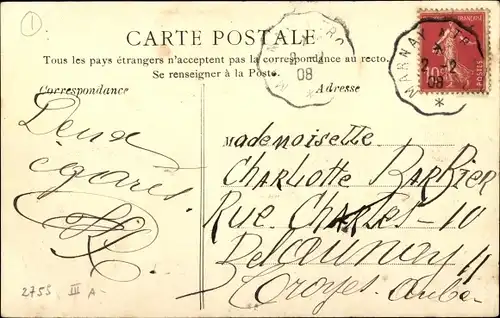 1
CARTE POSTALE
Tous les pays étrangers n'acceptent pas la correspondance au recto.
Se renseigner à la Poste.
Correspondance
Adresse
MARNAY
2-2
08
10
POSTES
Mademoiselle
Charlotte Barbier
Rue Charles-10
Delaunay 11
Troyes. Aube
2755 III A-